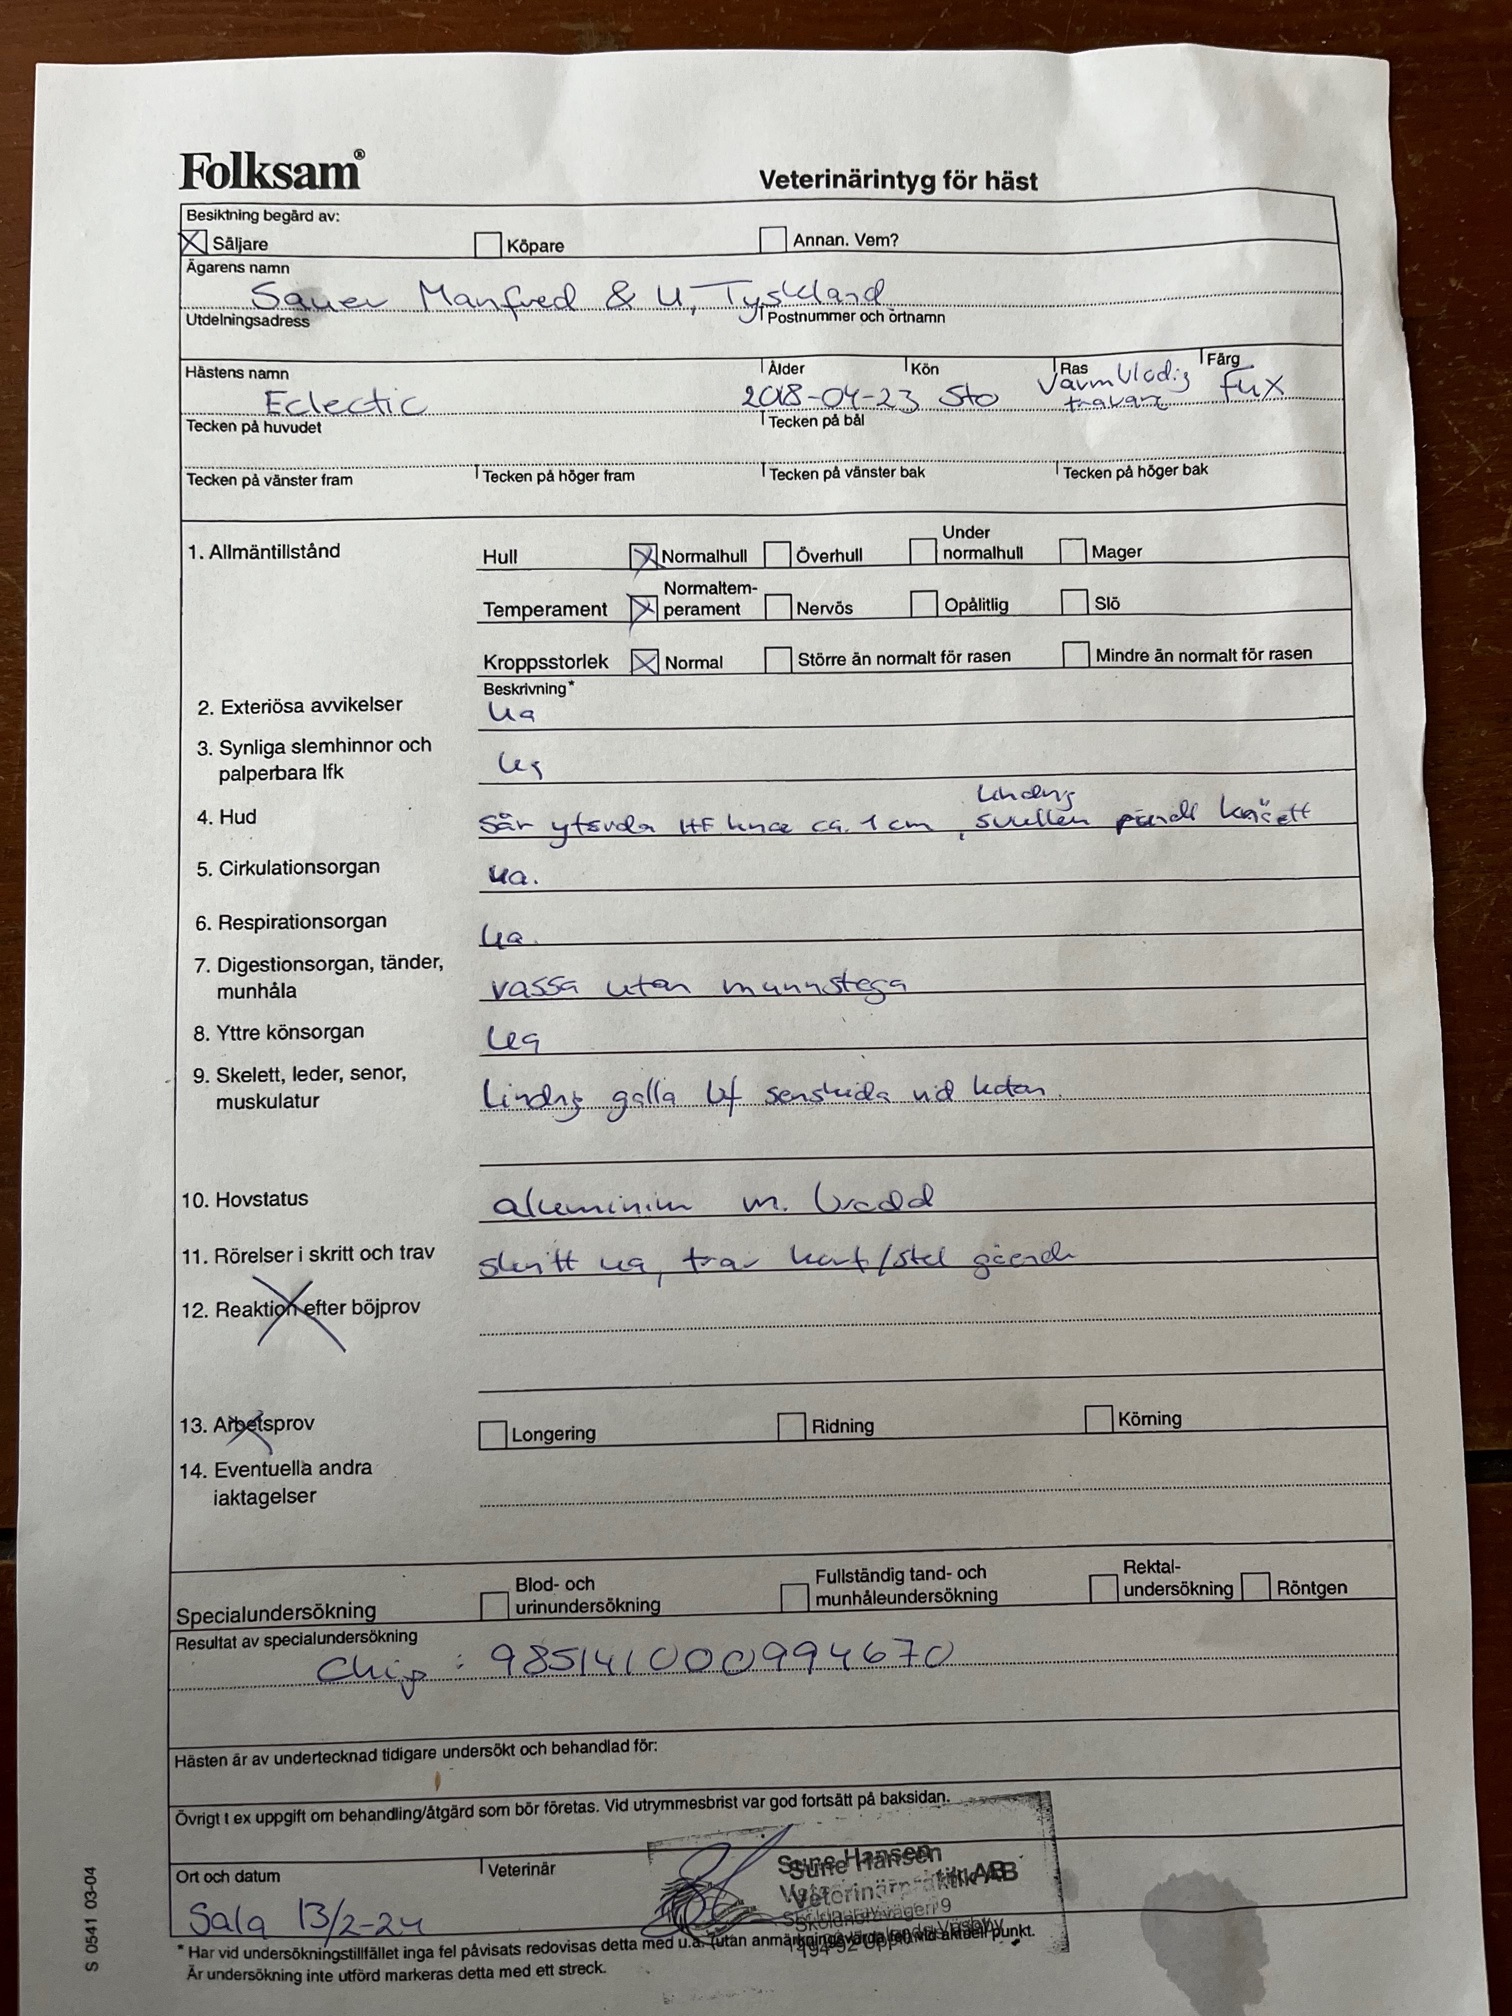 Folksam®
Veterinärintyg för häst
Besiktning begärd av:
Säljare Köpare Annan. Vem?
Ägarens namn
Sauer Manfred & U, Tyskland
Utdelningsadress Postnummer och ortnamn
Hästens namn Ålder Kön Ras Färg
Eclectic 2018-04-23 Sto Varmblodig travare Fux
Tecken på huvudet Tecken på bål
Tecken på vänster fram Tecken på höger fram Tecken på vänster bak Tecken på höger bak
1. Allmäntillstånd Hull Normalhull Överhull Under normalhull Mager
Temperament Normaltem-perament Nervös Opålitlig Slö
Kroppsstorlek Normal Större än normalt för rasen Mindre än normalt för rasen
Beskrivning*
2. Exteriösa avvikelser ua
3. Synliga slemhinnor och
palperbara lfk ua
lindrig
4. Hud Sår ytsvda HF knae ca. 1 cm, svullen
5. Cirkulationsorgan ua.
6. Respirationsorgan ua.
7. Digestionsorgan, tänder,
munhåla vassa utan munnstega
8. Yttre könsorgan ua
9. Skelett, leder, senor,
muskulatur Lindrig galla bf senskida vid kotan.
10. Hovstatus aluminim m. brodd
11. Rörelser i skritt och trav skritt ua, trav kort/stel gående
12. Reaktion efter böjprov
13. Arbetsprov Longering Ridning Körning
14. Eventuella andra
iaktagelser
Specialundersökning Blod- och urinundersökning Fullständig tand- och munhåleundersökning Rektal-undersökning Röntgen
Resultat av specialundersökning
Chip: 985141000994670
Hästen är av undertecknad tidigare undersökt och behandlad för:
Övrigt t ex uppgift om behandling/åtgärd som bör företas. Vid utrymmesbrist var god fortsätt på baksidan.
Ort och datum Veterinär
Sala 13/2-24
Sune Hansen
Veterinärpraktik AB
* Har vid undersökningstillfället inga fel påvisats redovisas detta med u.a. (utan anmärkningsvärda fel) vid aktuell punkt.
Är undersökning inte utförd markeras detta med ett streck.
S 0541 03-04